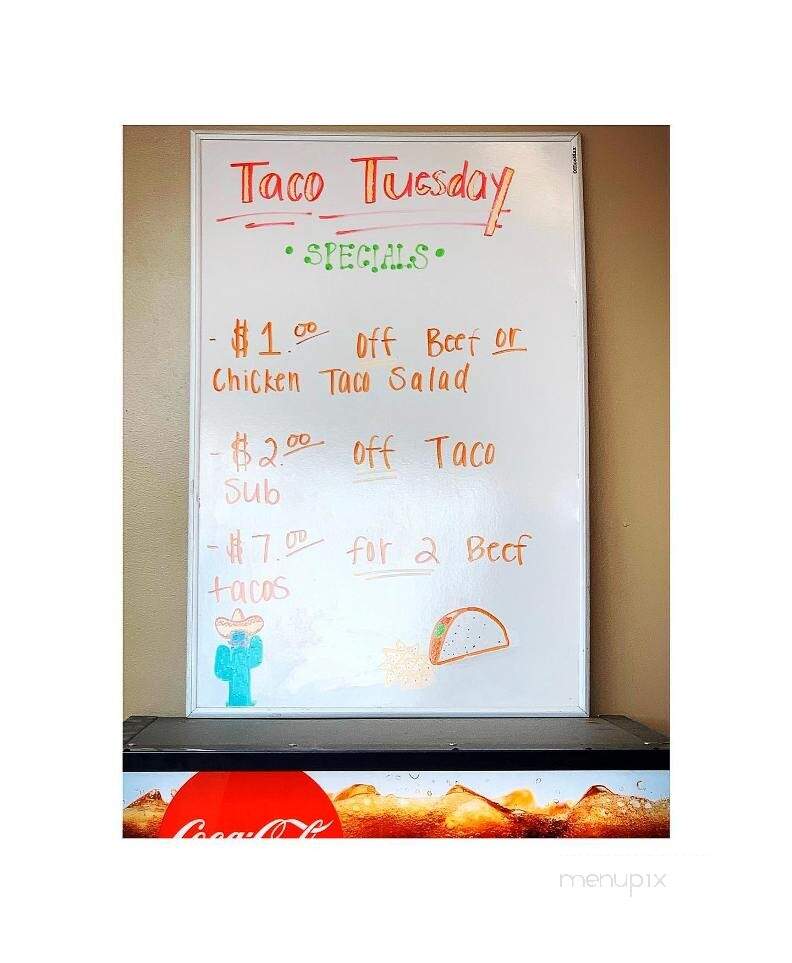 Taco Tuesday
• SPECIALS •
- $1.00 off Beef or
Chicken Taco Salad
- $2.00 off Taco
Sub
- $7.00 for 2 Beef
tacos
OfficeMax
Coca-Cola
menupix